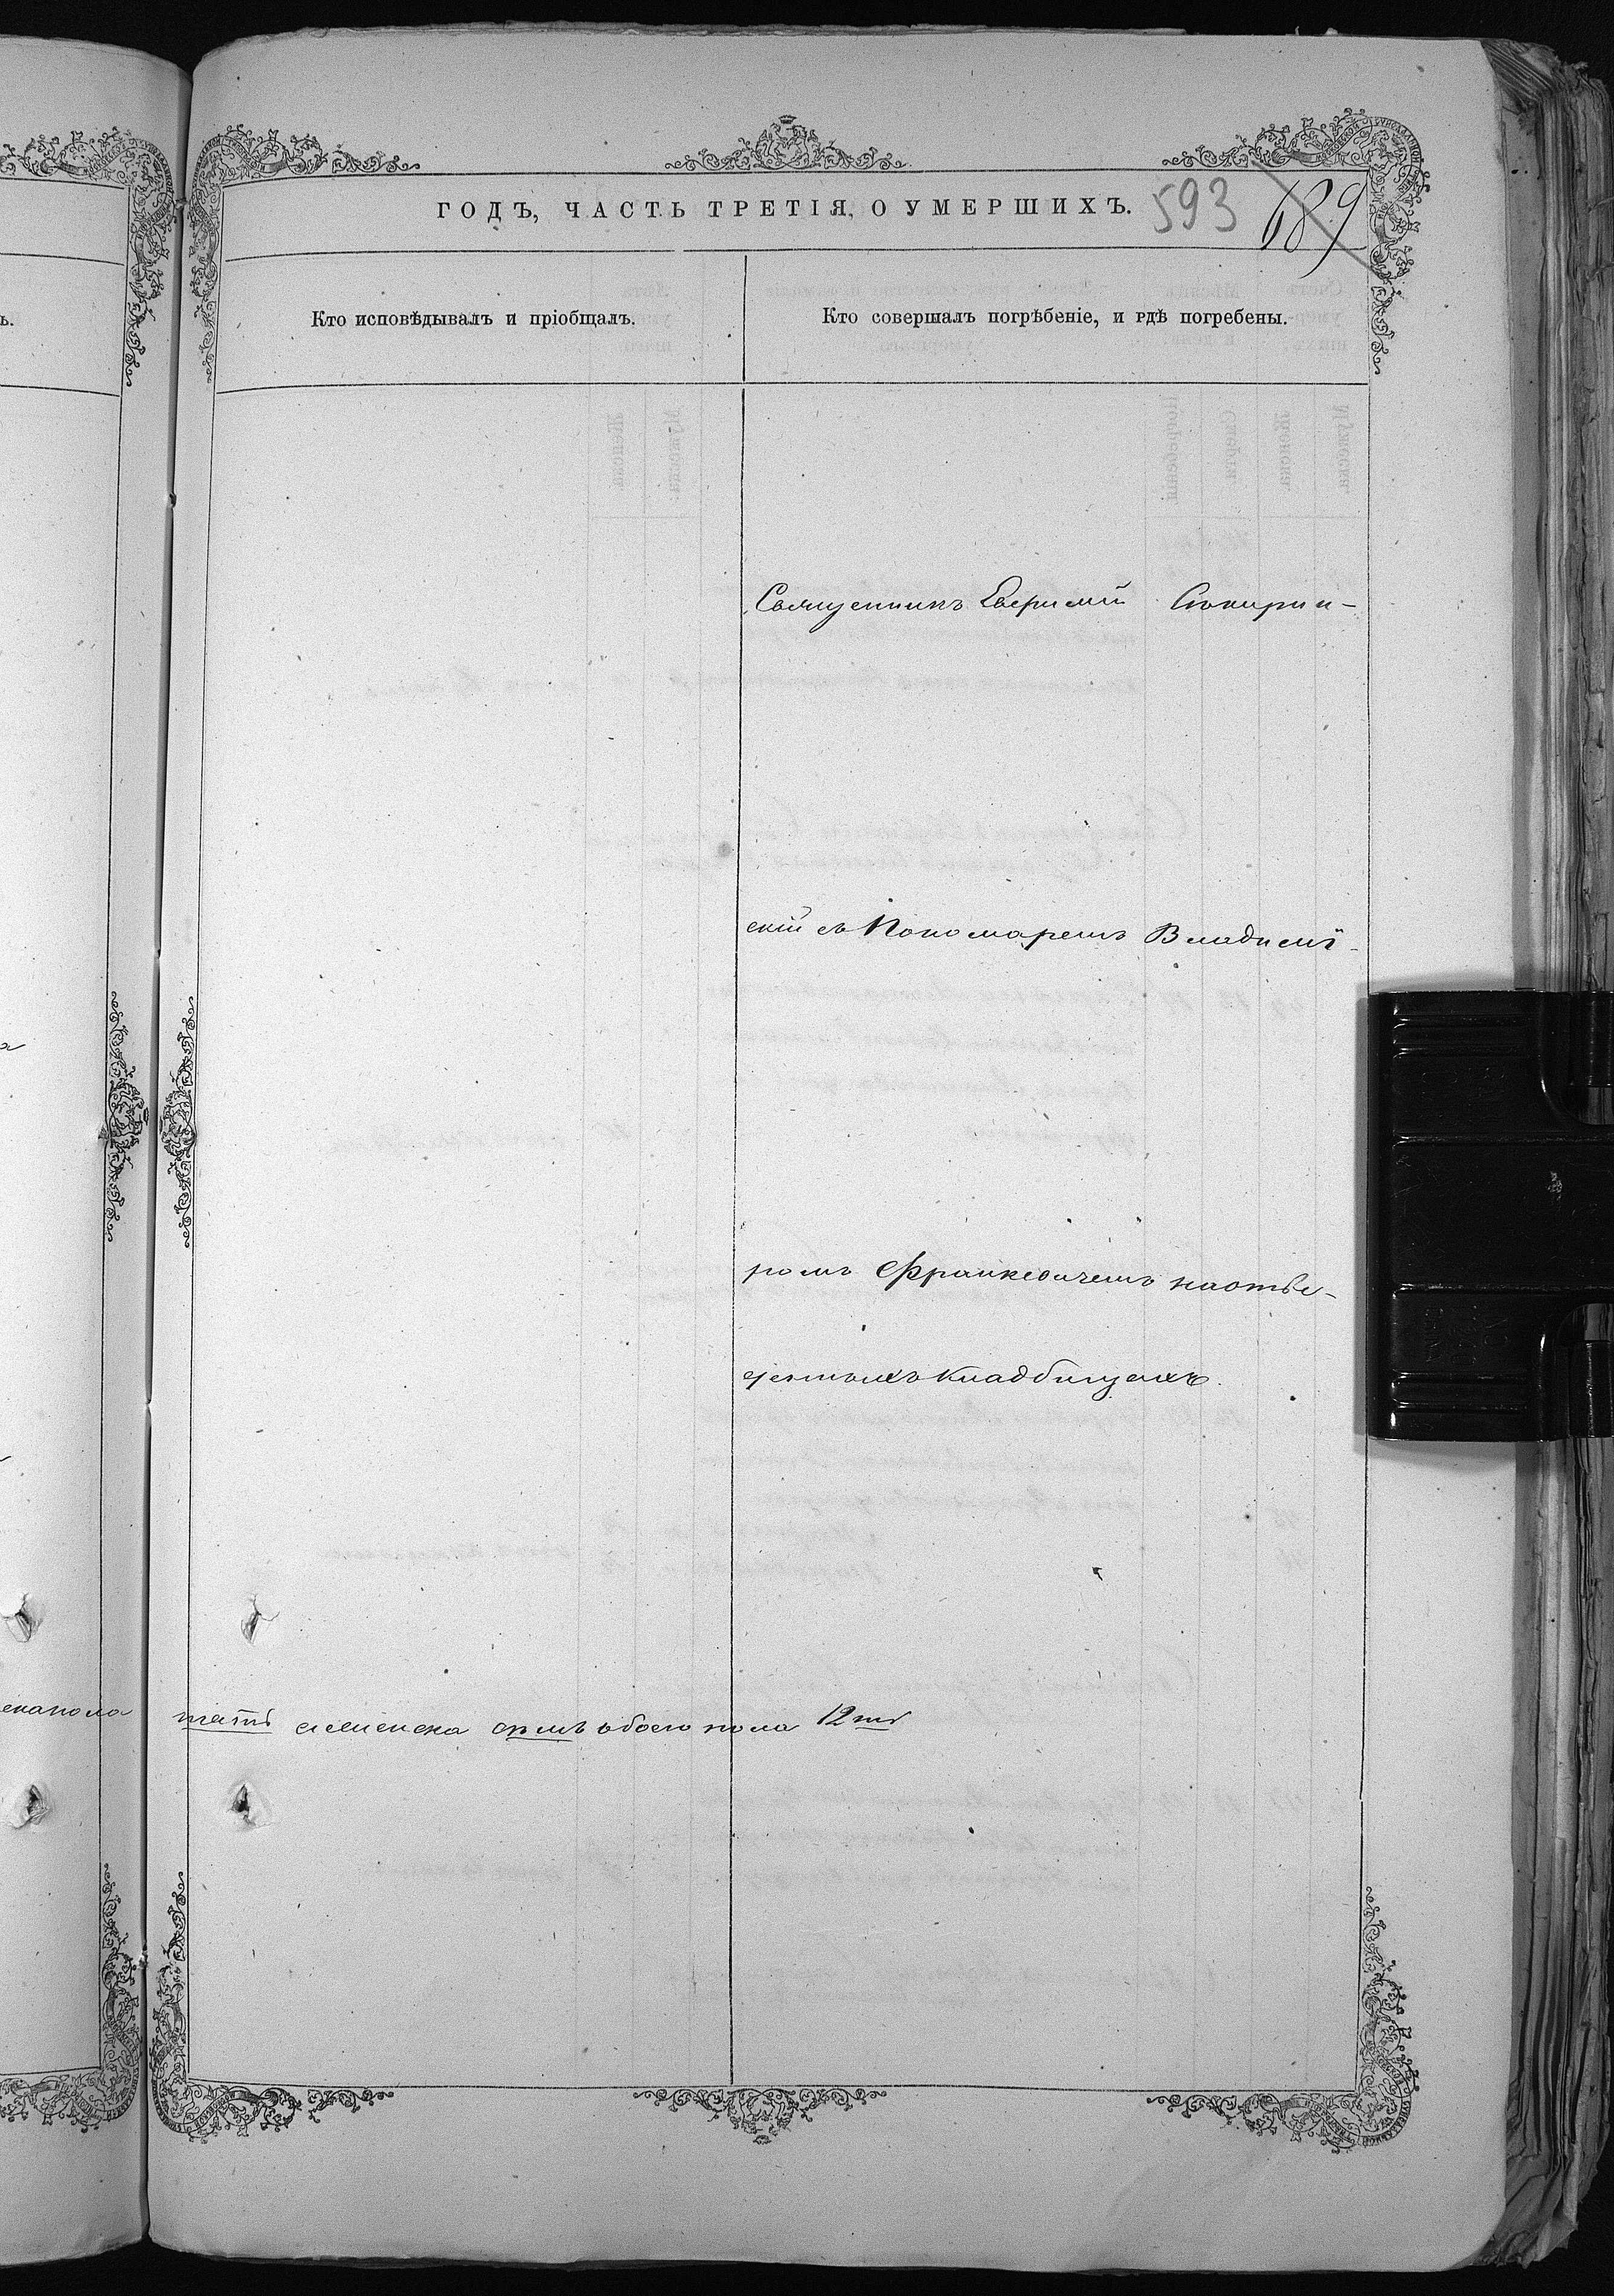 ГОДЪ, ЧАСТЬ ТРЕТІЯ, О УМЕРШИХЪ.
593 689
ь.
Кто исповѣдывалъ и пріобщалъ.
Кто совершалъ погрѣбеніе, и гдѣ погребены.
Священникъ Евфимій Сокирин-
скій съ Пономаремъ Владимі-
ромъ Франкевичемъ наотве-
денныхъ кладбищахъ.
скапола пять женска семь обоего пола 12ть